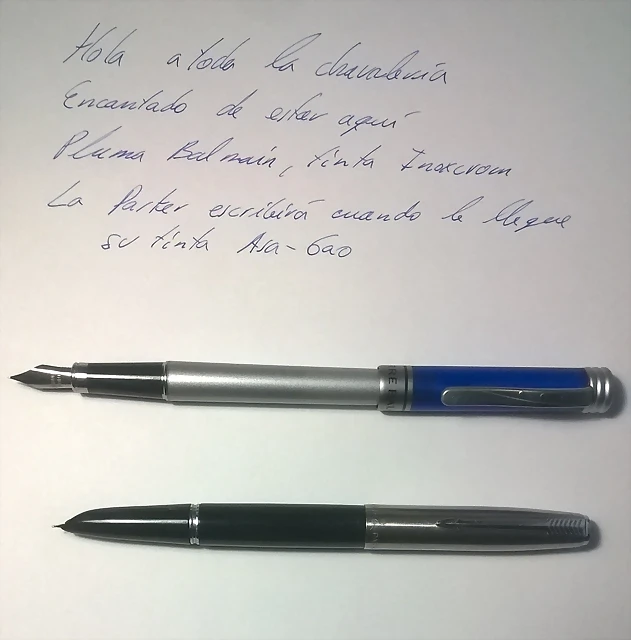 Hola a toda la chavalería
Encantado de estar aquí
Pluma Balmain, tinta Inoxcrom
La Parker escribirá cuando le llegue
su tinta Asa-Gao